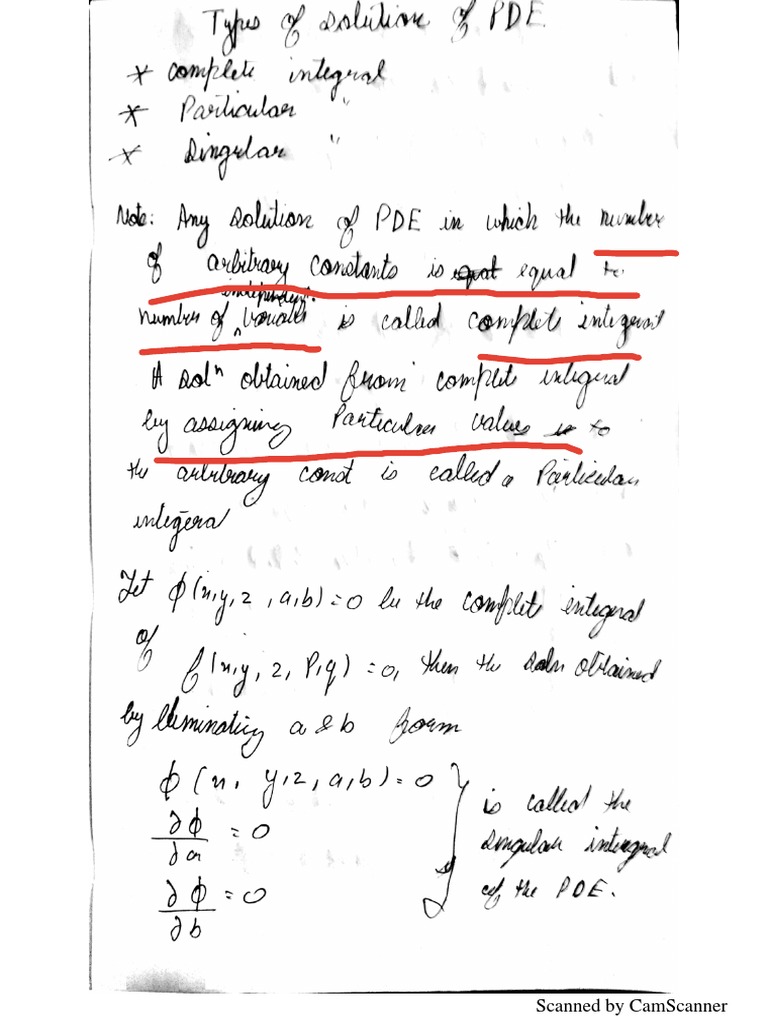 Types of solution of PDE
* complete integral
* Particular "
* Singular "
Note: Any solution of PDE in which the number
of arbitrary constants is equal to
independent
number of ^ variables is called complete integral
A solⁿ obtained from complete integral
by assigning Particular values to
the arbitrary const is called a Particular
integera
Let ϕ(x,y,z,a,b)=0 be the complete integral
of
f(x,y,z,P,q)=0, then the soln obtained
by eliminating a & b form
ϕ(x, y,z,a,b)=0
∂ϕ/∂a = 0
∂ϕ/∂b = 0
} is called the
singular intergral
of the PDE.
Scanned by CamScanner